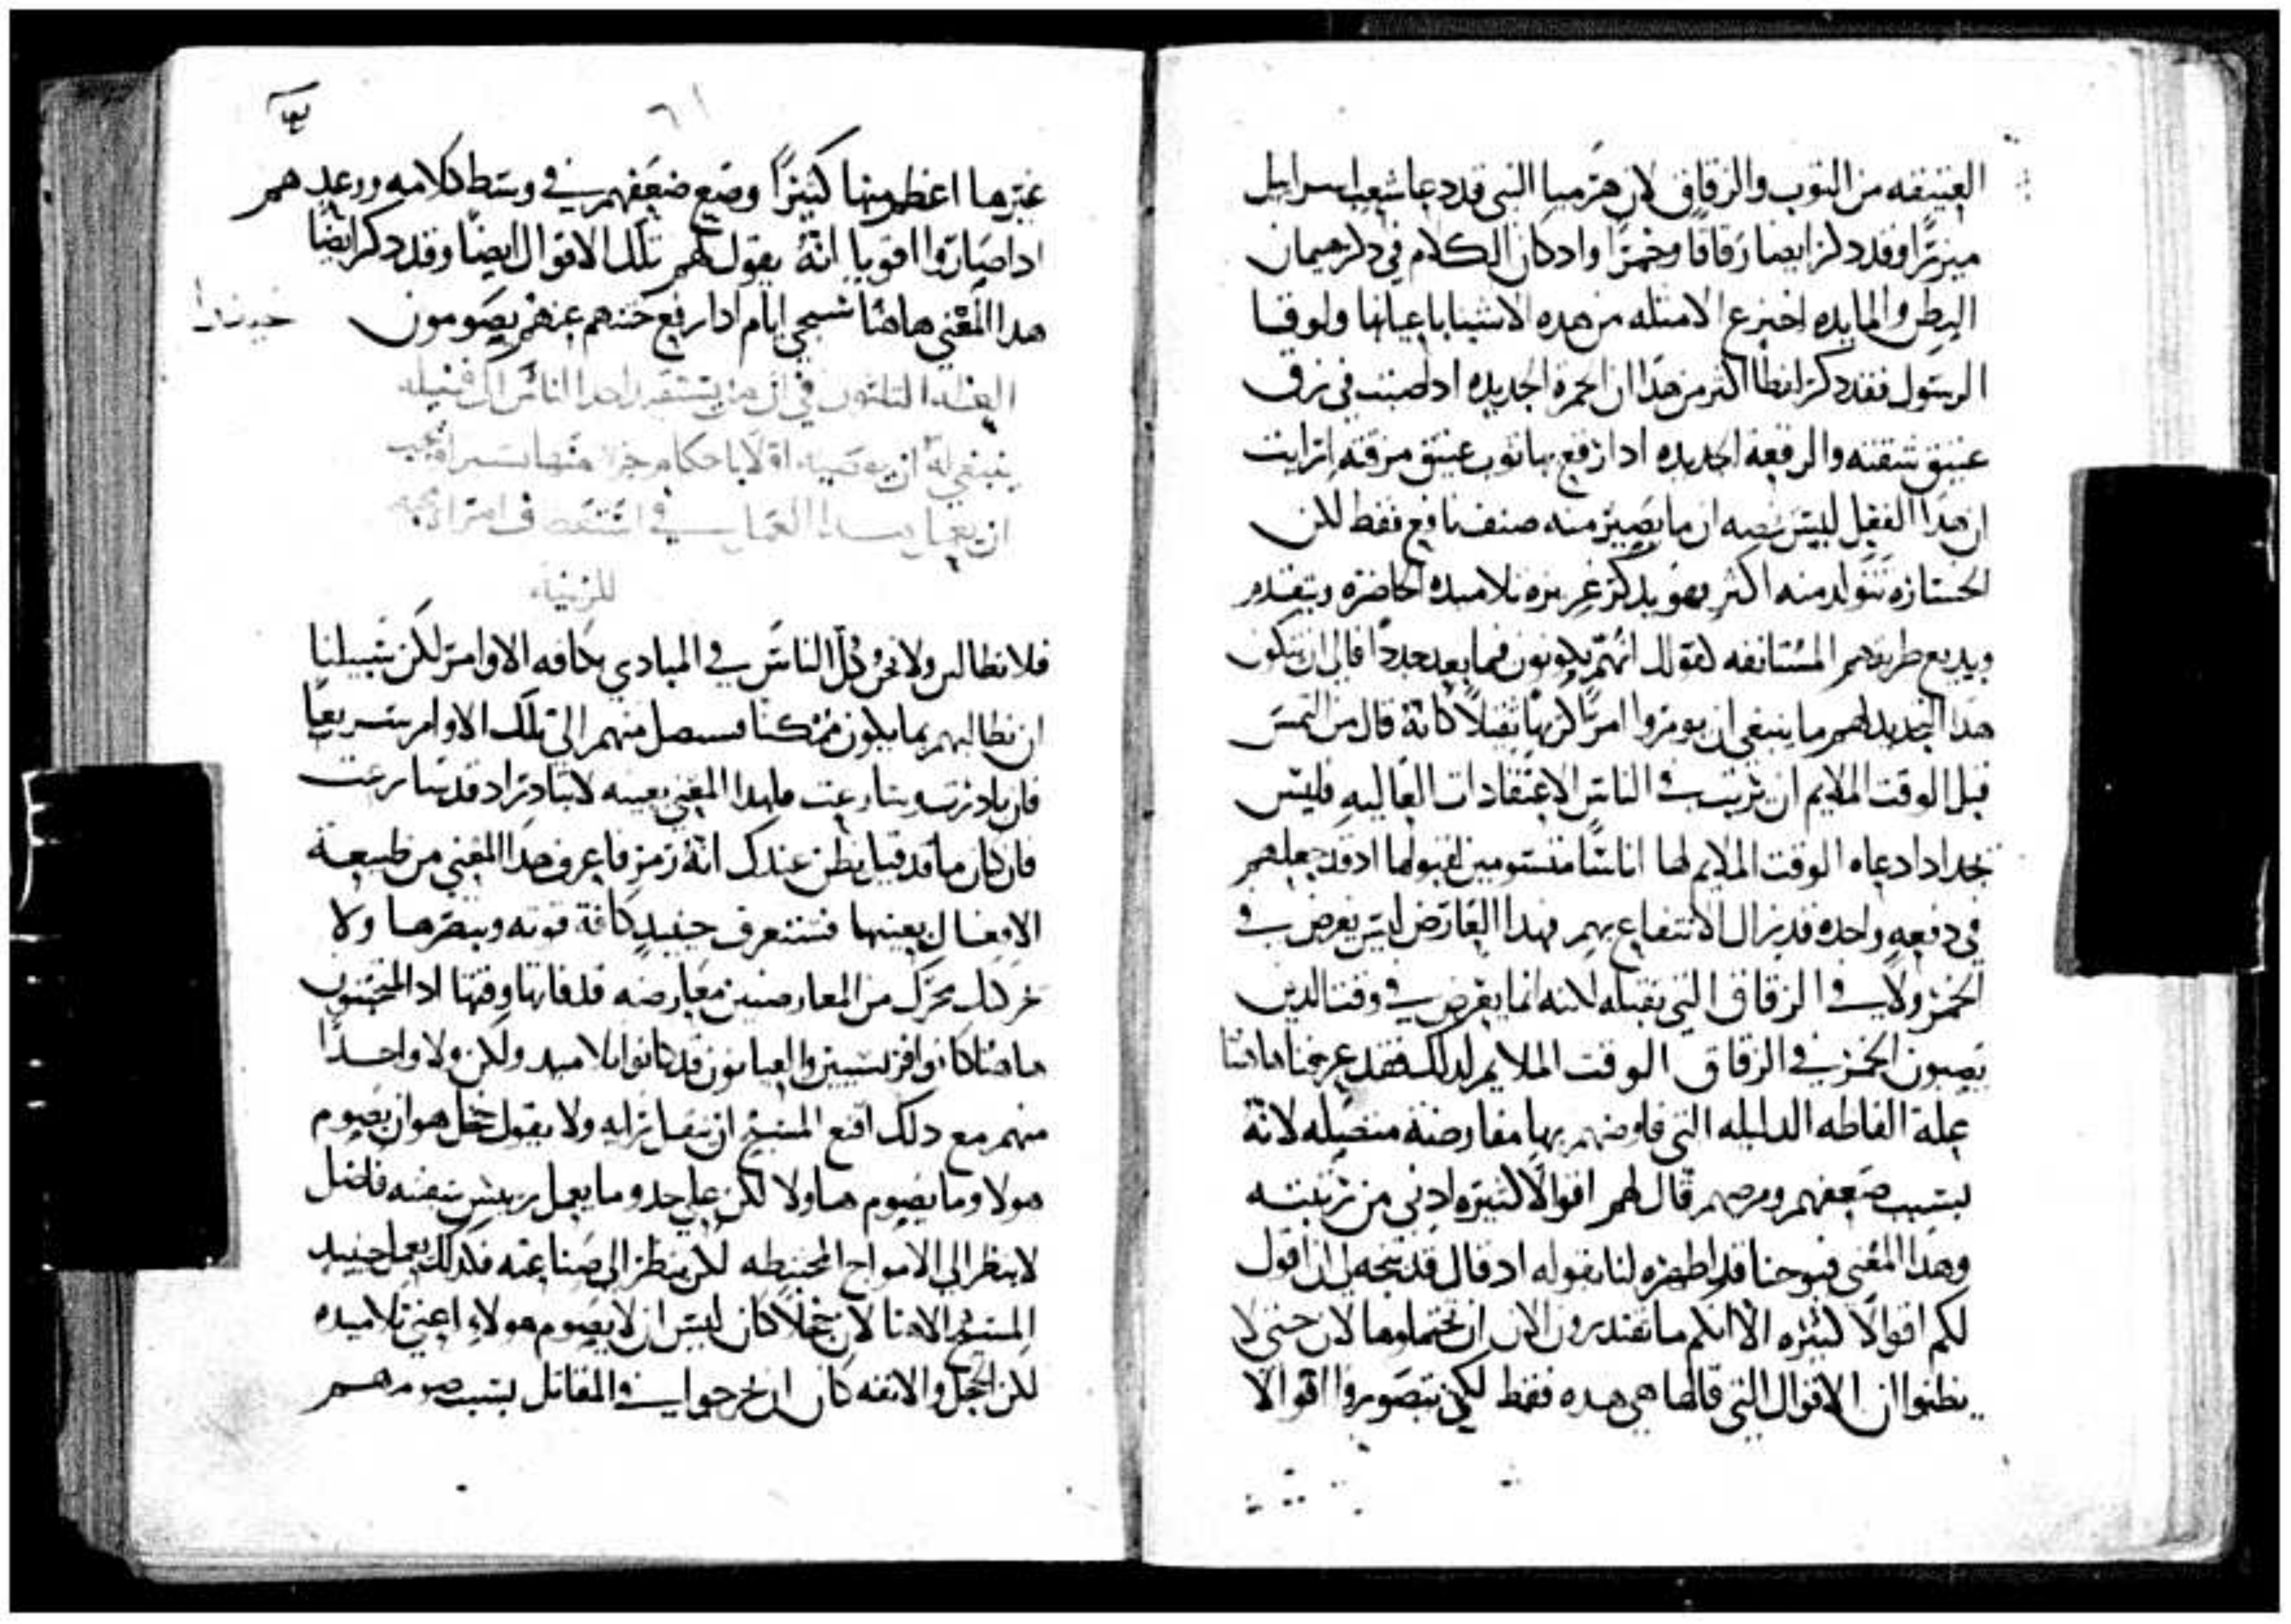 العتيقه من الثوب والزقاق لان هرميا النبي قد دعا شعب اسراييل
ميزرًا وقد دكر ايضا زقاقا وخمرًا واد كان الكلام في دكر هيمان
البطن والمايده اخترع الامثله من هده الاشيا باعيانها ولوقا
الرسول فقد دكر ايضا اكثر من هدا ان الخمره الجديده ادا صبت في زق
عتيق شقته والرقعه الجديده ادا رقع بها ثوب عتيق مزقته ارايت
ان هدا الفعل ليس نصه ان ما يصير منه صنف نافع فقط لكن
الخساره تتولد منه اكثر فهو يدكر غريزه تلاميده الحاضره ويتقدم
ويديع طريقهم المستانفه لقوله انهم يكونون فيما بعد جددًا فالى ان يتكون
هدا التجديد لهم ما ينبغي ان يومروا امرًا كريهًا ثقيلاً كانه قال من التمس
قبل الوقت الملايم ان يرتب في الناس الاعتقادات العاليه فليس
يجد ادا دعاه الوقت الملايم لها اناسًا متسومين لقبولها اد قد جعلهم
في دفعه واحده قد يزال الانتفاع بهم فهدا العارض ليس يعرض في
الخمر ولا في الزقاق التي تقبله لانه انما يعرض في وقت الدين
يصبون الخمر في الزقاق الوقت الملايم لدلك فقد عرفنا هاهنا
علة الفاظه الدليله التي فاوضهم بها مفاوضة متصله لانه
بسبب ضعفهم ومرضهم قال لهم اقوالاً كثيره ادني من رتبته
وهدا المعني فيوحنا قد اظهره لنا بقوله اد قال قد يتجه لي ان اقول
لكم اقوالاً كثيره الا انكم ما تقدرون الان ان تحتملوها لان حتى لا
يظنوا ان الاقوال التي قالها هي هده فقط لكي يتصوروا اقوالا
٦١
غيرها اعظم منها كثيرًا وضع ضعفهم في وسط كلامه ووعدهم
ادا صاروا اقويا انه يقول لهم تلك الاقوال ايضًا وقد دكر ايضًا
هدا المعني هاهنا ستجي ايام ادا رفع ختنهم عنهم يصومون
العظه الثلثون في ان من يستقر احد الناس الى فضيله
ينبغي له ان يوصيه اولا باحكام جزء منها
للزنيه
فلا نطالبن ولا نحن كل الناس في المبادي بكافه الاوامر لكن سبيلنا
ان نطالبهم بما يكون ممكنا فسيصل منهم الى تلك الاوامر سريعا
فان بادرت وسارعت فلهدا المعني بعينه لا تبادر اد قد سارعت
فان كان ما قد قيل يظن عندك انه رمز فاعرف هدا المعني من طبيعة
الافعال بعينها فستعرف حينيدٍ كافة قوته وينصرها ولا
محرك من المعارضين معارضه قد فاتها وقتها اد المحتنون
هاهنا كانوا فريسيين والعيابون قد كانوا تلاميد ولكن ولا واحدًا
منهم مع دلك اقنع المسيح ان ينقل رايه ولا يقول خجل هو ان يصوم
هولا وما يصوم هاولا لكن علي حد وما يعمل رييس سفينه فاضل
لا ينظر الي الامواج المحيطه لكن ينظر الى صناعته فكدلك يعمل حينيد
المسيح الاهنا لان خجلا كان ليس ان لا يصوم هولاء اعني تلاميده
لكن الخجل والانفه كان ان يخرجوا في المقاتل بسبب صومهم